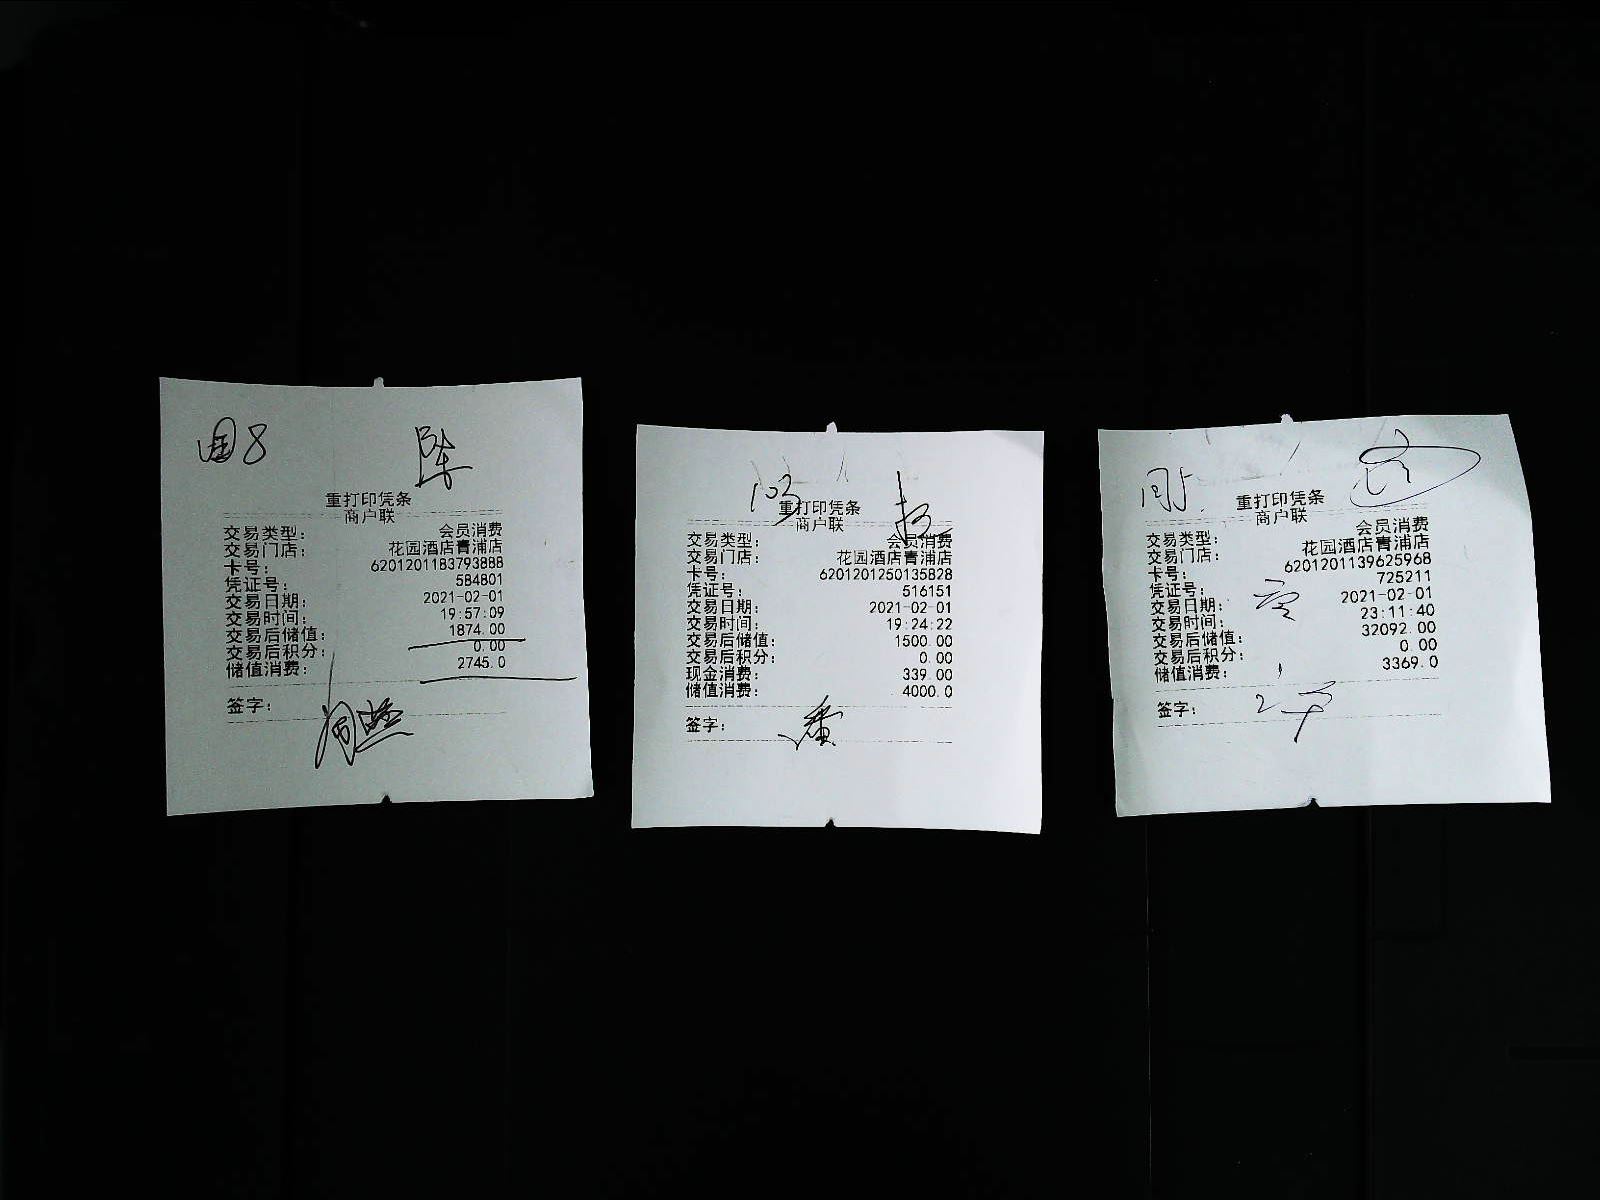 8 陈
重打印凭条
商户联
交易类型: 会员消费
交易门店: 花园酒店青浦店
卡号: 6201201183793888
凭证号: 584801
交易日期: 2021-02-01
交易时间: 19:57:09
交易后储值: 1874.00
交易后积分: 0.00
储值消费: 2745.0
签字:
103
重打印凭条
商户联
交易类型: 会员消费
交易门店: 花园酒店青浦店
卡号: 6201201250135828
凭证号: 516151
交易日期: 2021-02-01
交易时间: 19:24:22
交易后储值: 1500.00
交易后积分: 0.00
现金消费: 339.00
储值消费: 4000.0
签字: 潘
重打印凭条
商户联
交易类型: 会员消费
交易门店: 花园酒店青浦店
卡号: 6201201139625968
凭证号: 725211
交易日期: 2021-02-01
交易时间: 23:11:40
交易后储值: 32092.00
交易后积分: 0.00
储值消费: 3369.0
签字: